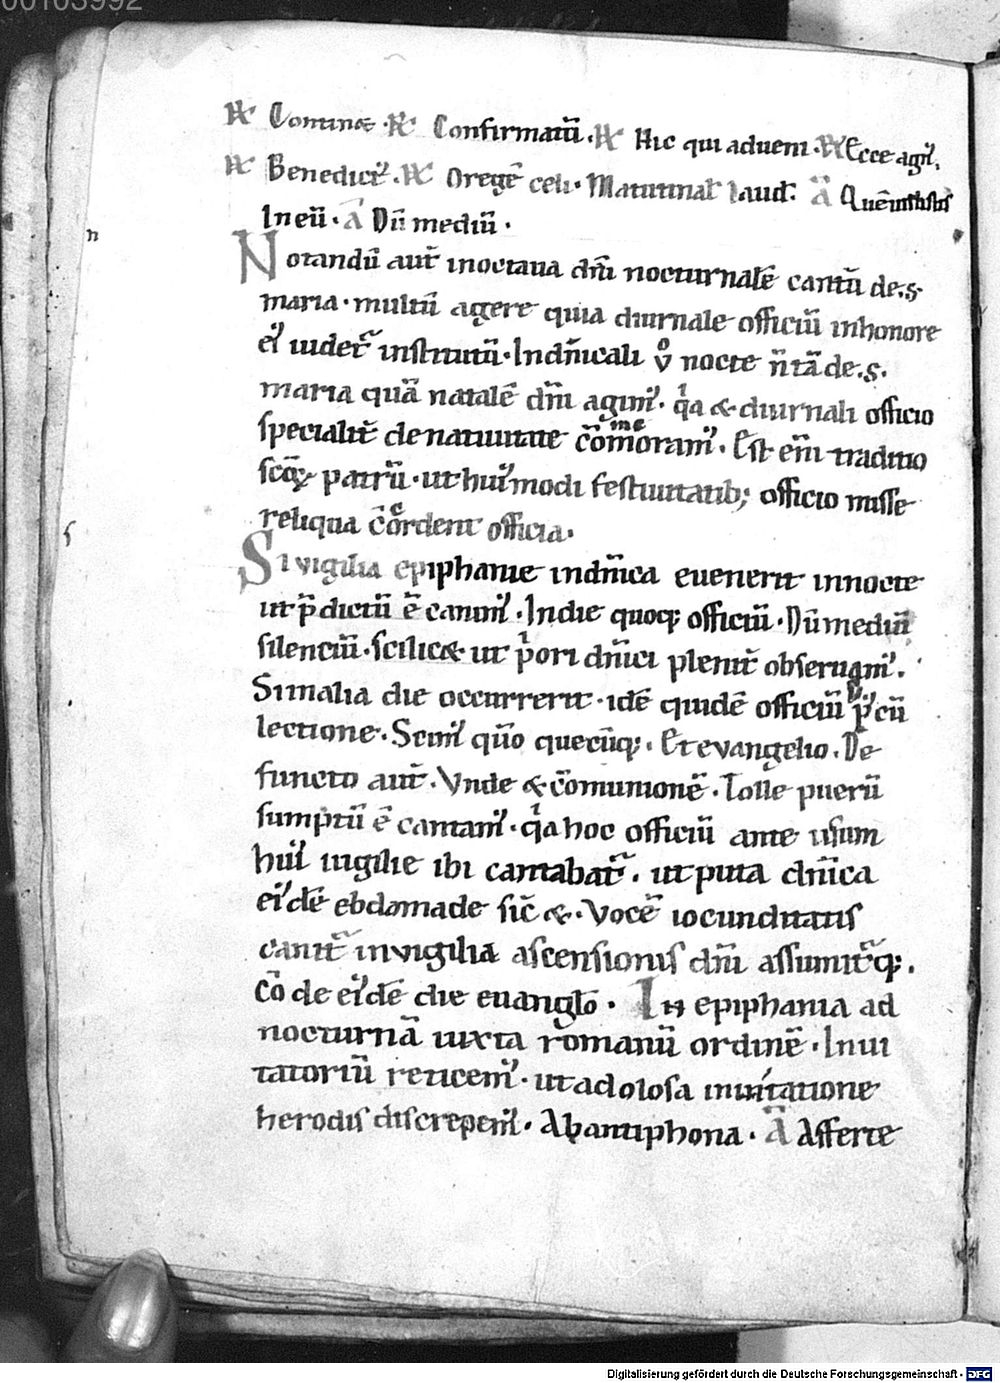 00103992
R Continet · R Confirmatū . R Hic qui adueni . R Ecce agn᷒.
R Benedict᷒ . R Oregē celi · Matutinal̄ laud̄. A Quē uidistis
Ineū · A Dū mediū .
n
Notandū aut̄ inoctaua dn̄i nocturnalē cantū de .s.
maria · multū agere quia diurnale officiū inhonore
ei᷒ uidet᷑ institutū · Indn̄icali v° nocte n̄ tā de .s.
maria quā natalē dn̄i agim᷒ . qͥa & diurnali officio
specialit̄ denatiuitate cōmemoram᷒ . Est eni̅ traditio
scōꝝ patrū · ut hui᷒modi festiuitatib; officio misse
reliqua cōcordent officia .
s
Si vigilia epiphanie indn̄ica euenerit innocte
ut p̄dictū ē canim᷒ . Indie quoq; officiū · Dū mediū
silenciū · scilic& · ut pͥori dn̄ici plenit̄ obseruam᷒ .
Sinalia die occurrerit · idē quidē officiū p᷒ cū
lectione . Scim᷒ qm̄o quecūq; . Et evangelio . De
functo aut̄ . Vnde & cōmunionē . Tolle puerū
sumptū ē cantam᷒ . qͥa hoc officiū ante usum
hui᷒ uigilie ibi cantabat᷑ . ut puta dn̄ica
ei᷒dē ebdomade sic̄ & . Vocē iocunditatis
canit᷑ in vigilia ascensionis dn̄i assumit᷑q; .
Cō de ei᷒dē die euanglō . In epiphania ad
nocturnā iuxta romanū ordinē . Inui
tatoriū reticem᷒ . ut adolosa inuitatione
herodis discrepem᷒ . Ab antiphona . A Afferte
Digitalisierung gefördert durch die Deutsche Forschungsgemeinschaft - DFG